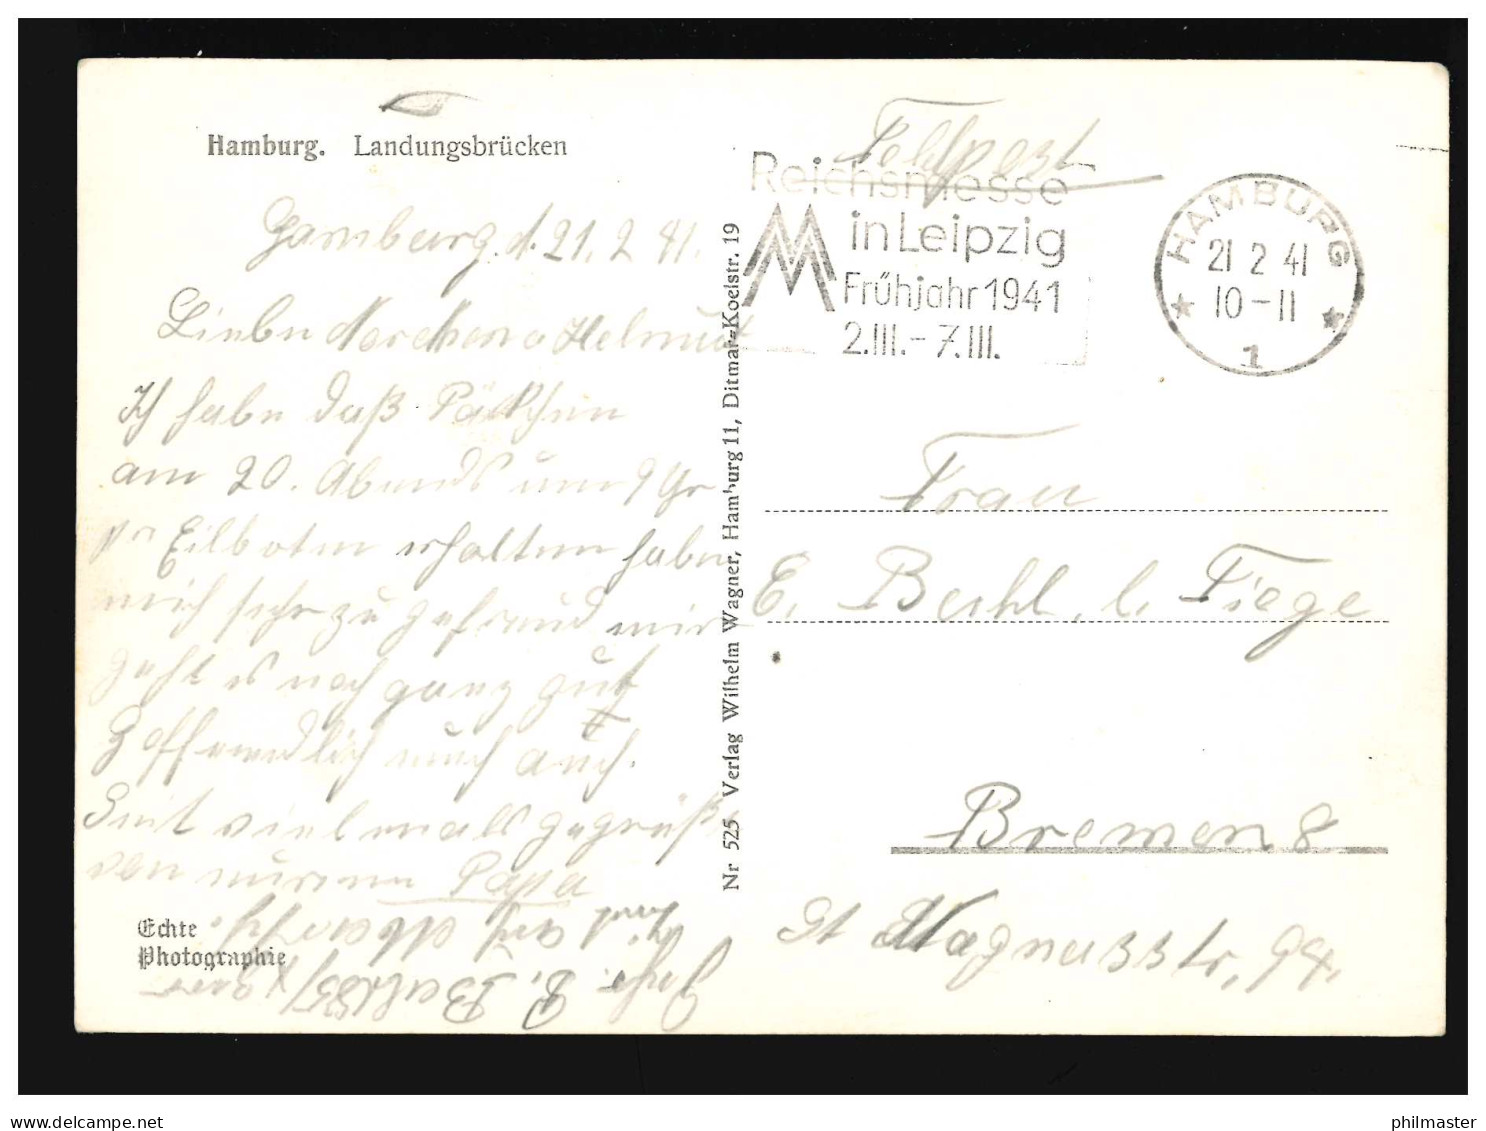 Hamburg. Landungsbrücken
Hamburg. d. 21. 2. 41.
Liebe Norchen u Helmut
Ich habe daß Päckchen
am 20. Abends um 9 Uhr
Eilboten erhalten habe
mich sehr zu gefreud mir
geht es noch ganz gut
Hoffendlich euch auch.
Seit vielmals gegrüßt
von eurem Papa
Echte
Photographie
Nr 525 Verlag Wilhelm Wagner, Hamburg 11, Ditmar-Koelstr. 19
Feldpost
Reichsmesse
in Leipzig
Frühjahr 1941
2.III.-7.III.
HAMBURG
21 2 41
10-11
1
Frau
E. Bechl, b. Tiege
Bremen 8
St Magnusstr. 94.
www.delcampe.net
philmaster